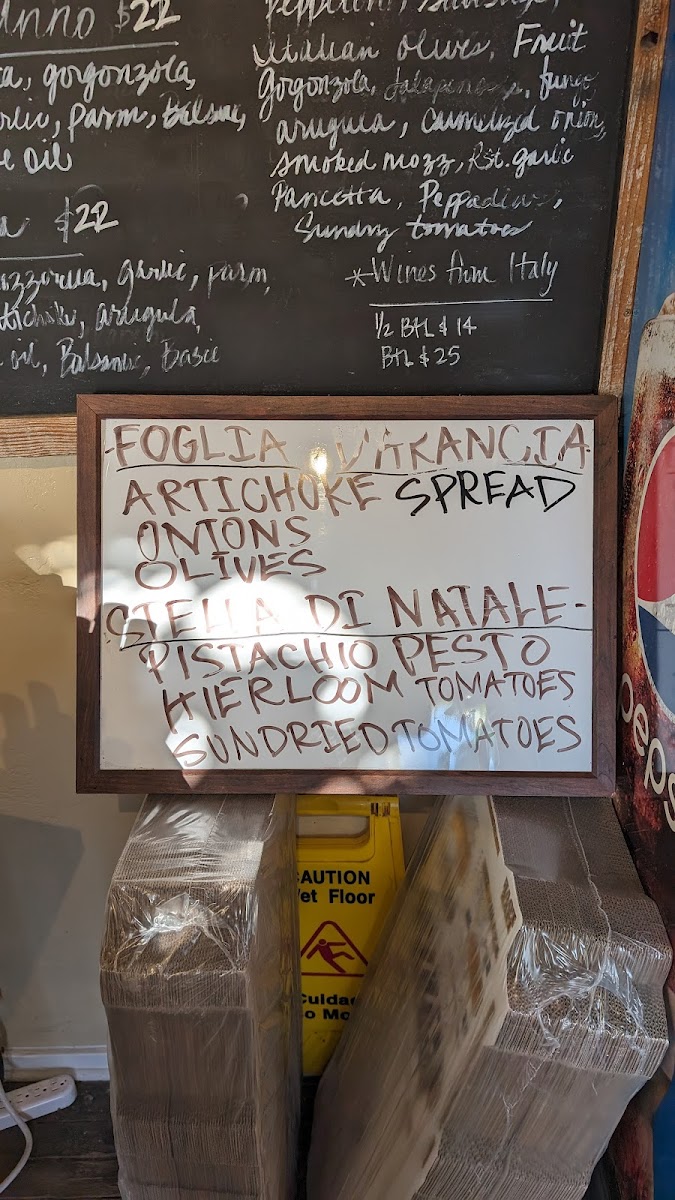 nno $22
gorgonzola,
Parm, Balsamic,
oil
$22
garlic, parm,
arugula,
oil, Balsamic, Basil
Italian olives, Fruit
Gorgonzola, Jalapenos, fungi
arugula, Carmelized onion,
smoked mozz, Rst. garlic
Pancetta, Peppadew,
Sundry tomatoes
*Wines from Italy
1/2 BTL $14
BTL $25
-FOGLIA VARANCIA-
ARTICHOKE SPREAD
ONIONS
OLIVES
STELLA DI NATALE-
PISTACHIO PESTO
HIERLOOM TOMATOES
SUNDRIED TOMATOES
CAUTION
Wet Floor
Cuidad
o Mo
peps